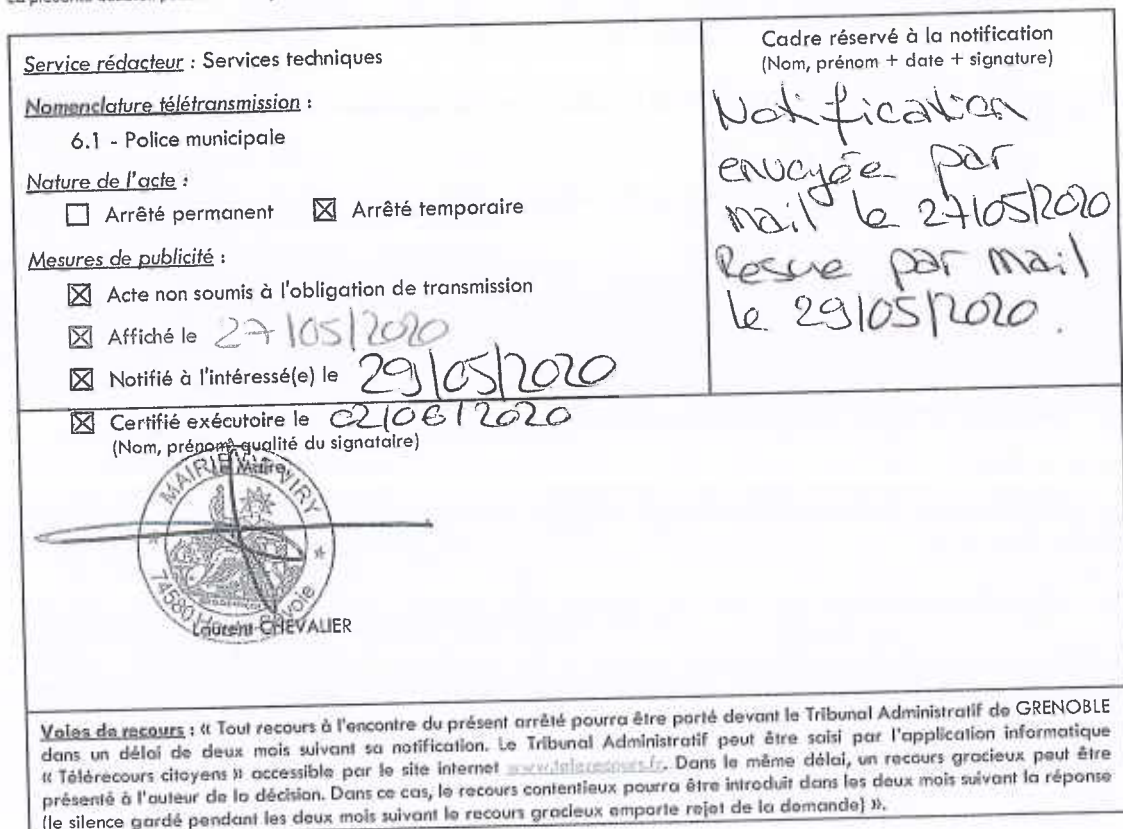 Service rédacteur : Services techniques
Nomenclature télétransmission :
6.1 - Police municipale
Nature de l'acte :
☐ Arrêté permanent ☒ Arrêté temporaire
Mesures de publicité :
☒ Acte non soumis à l'obligation de transmission
☒ Affiché le 27/05/2020
☒ Notifié à l'intéressé(e) le 29/05/2020
☒ Certifié exécutoire le 02/06/2020
(Nom, prénom, qualité du signataire)
Cadre réservé à la notification
(Nom, prénom + date + signature)
Notification
envoyée par
mail le 27/05/2020
Resçue par mail
le 29/05/2020.
Le Maire,
MAIRIE DE VIRY
74580 Haute-Savoie
Laurent CHEVALIER
Voies de recours : « Tout recours à l'encontre du présent arrêté pourra être porté devant le Tribunal Administratif de GRENOBLE
dans un délai de deux mois suivant sa notification. Le Tribunal Administratif peut être saisi par l'application informatique
« Télérecours citoyens » accessible par le site internet www.telerecours.fr. Dans le même délai, un recours gracieux peut être
présenté à l'auteur de la décision. Dans ce cas, le recours contentieux pourra être introduit dans les deux mois suivant la réponse
(le silence gardé pendant les deux mois suivant le recours gracieux emporte rejet de la demande) ».